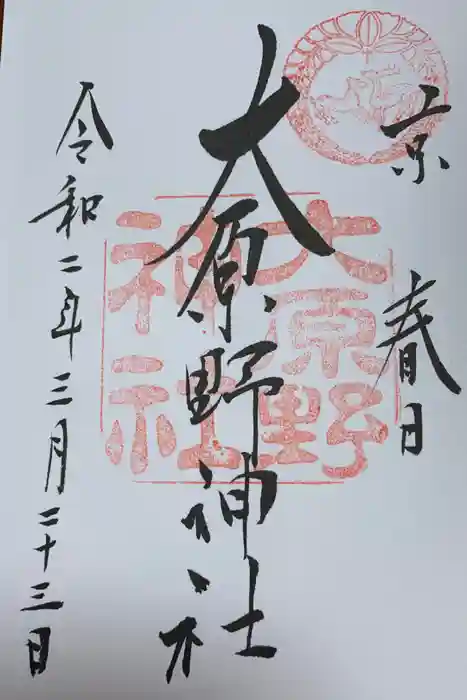 京春日
大原野神社
令和二年三月二十三日
大原野
神社